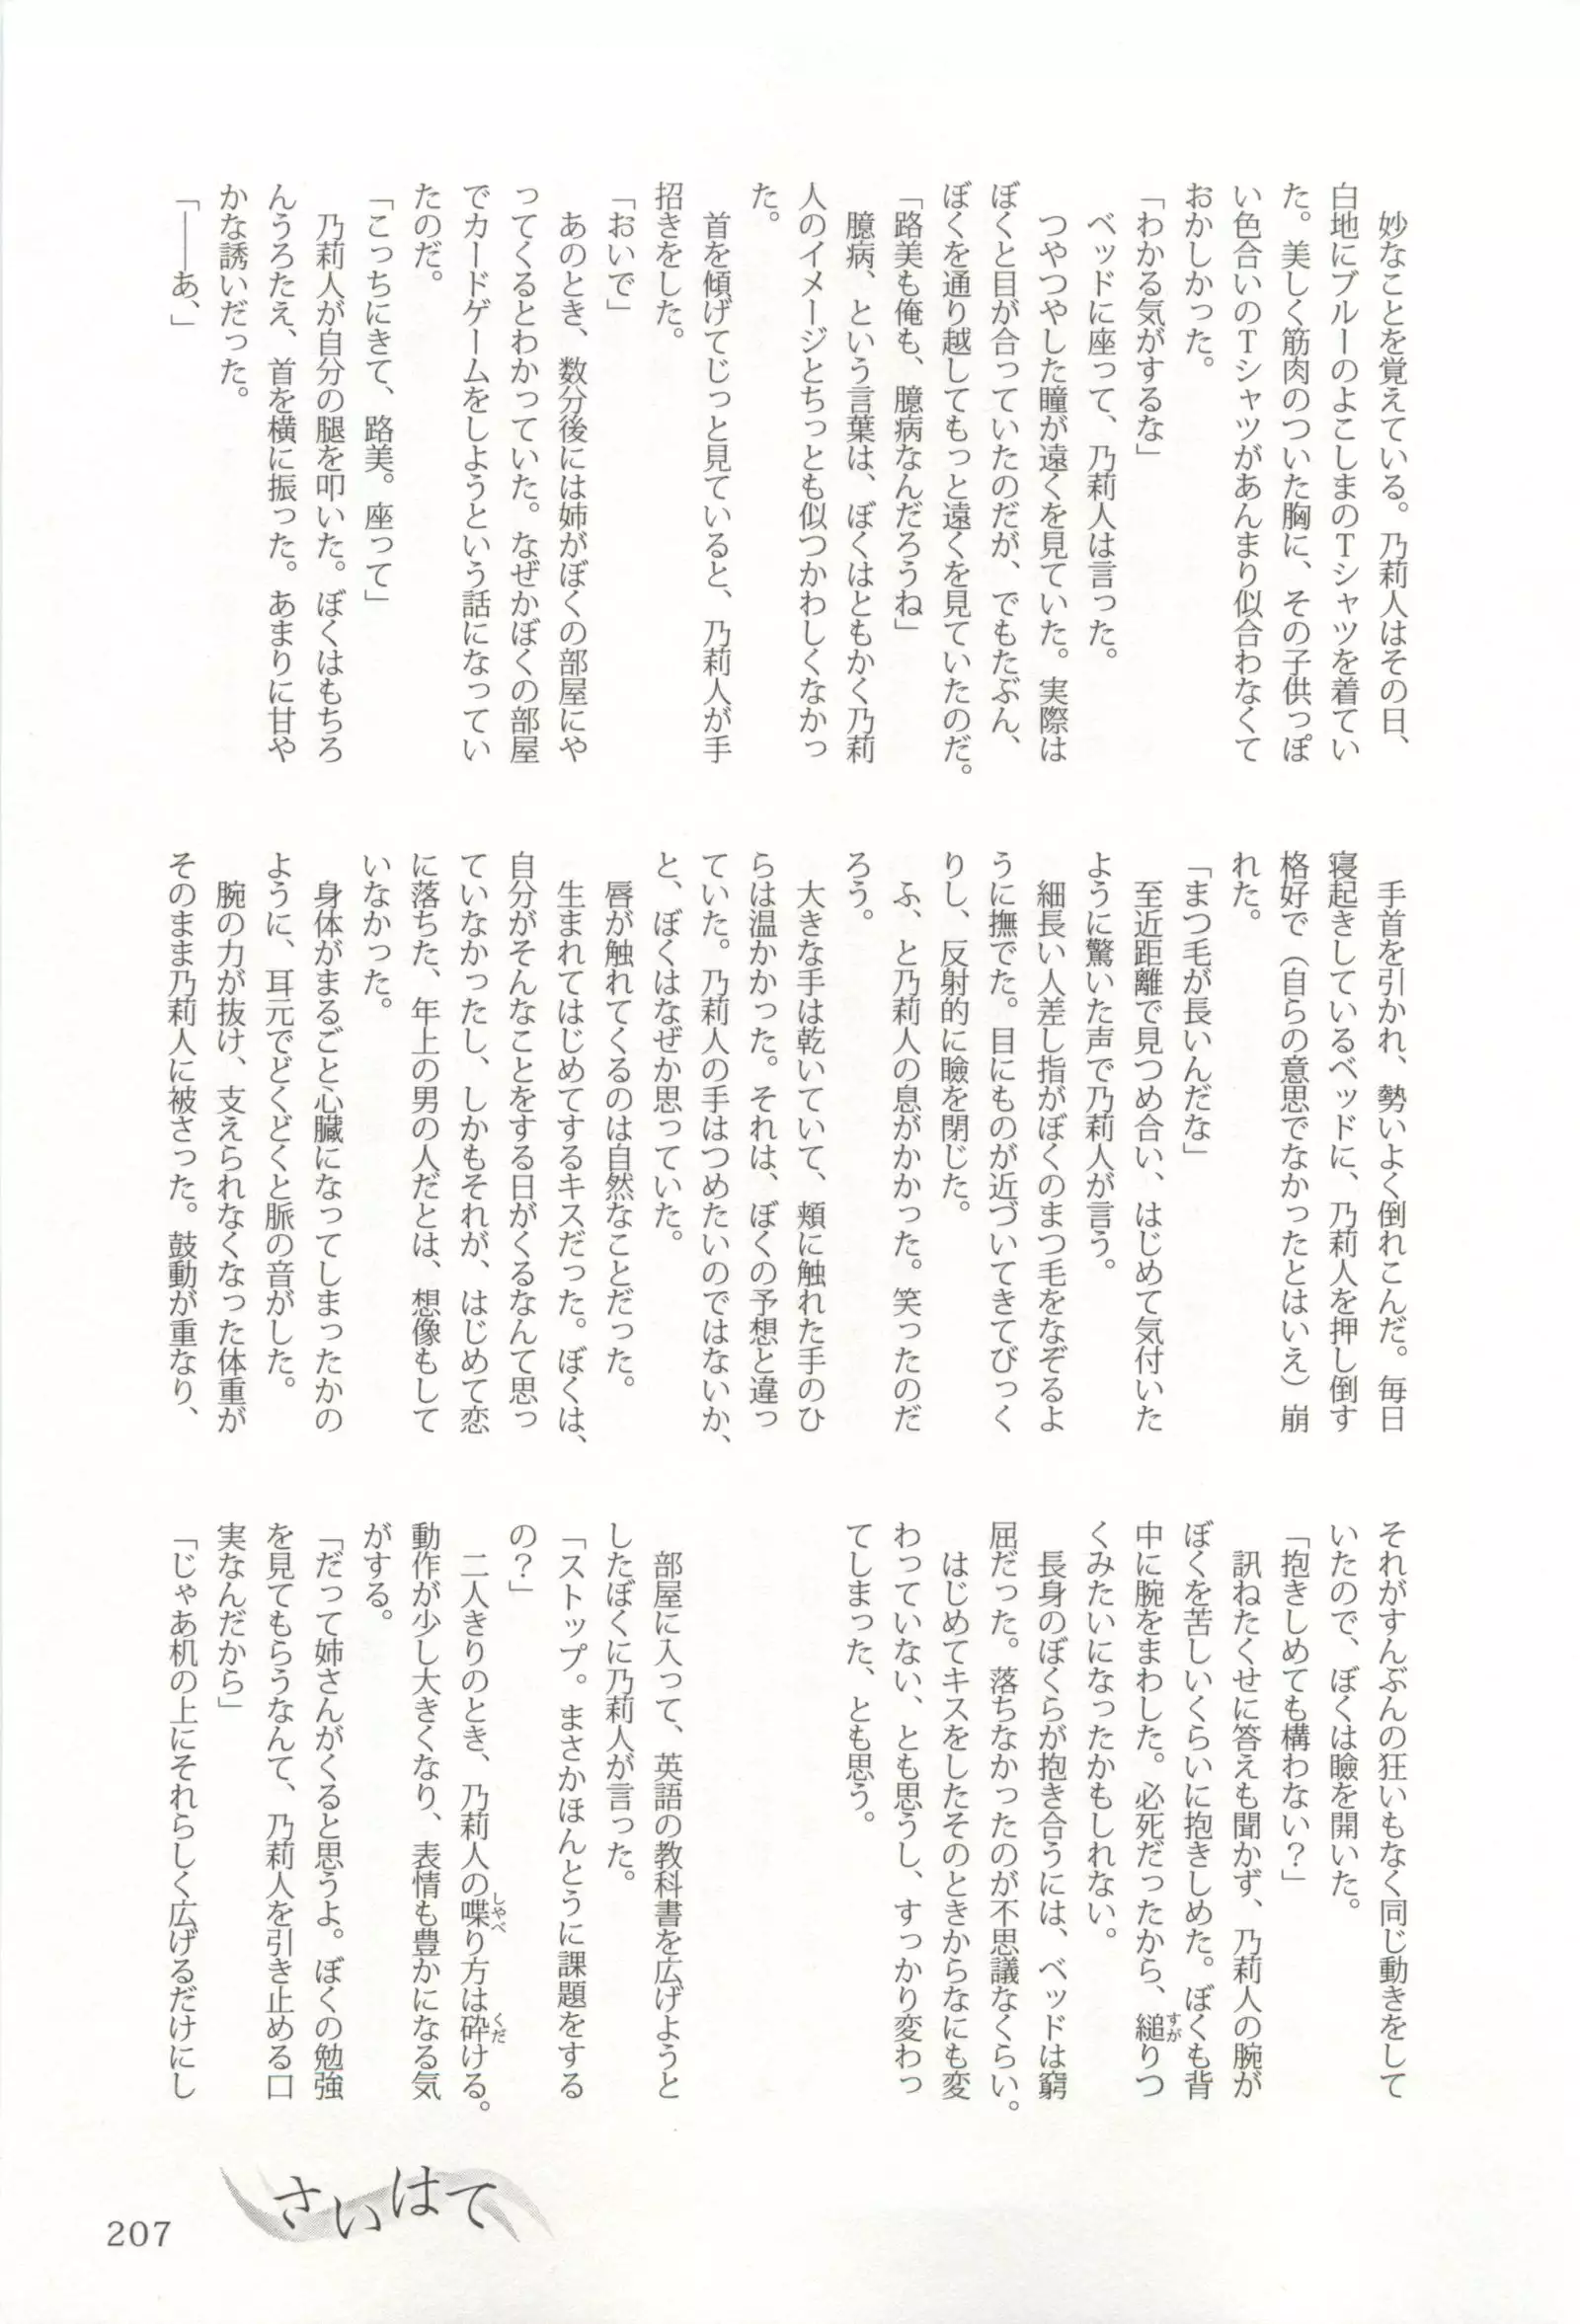 妙なことを覚えている。乃莉人はその日、
白地にブルーのよこしまのTシャツを着てい
た。美しく筋肉のついた胸に、その子供っぽ
い色合いのTシャツがあんまり似合わなくて
おかしかった。
「わかる気がするな」
ベッドに座って、乃莉人は言った。
つやつやした瞳が遠くを見ていた。実際は
ぼくと目が合っていたのだが、でもたぶん、
ぼくを通り越してもっと遠くを見ていたのだ。
「路美も俺も、臆病なんだろうね」
臆病、という言葉は、ぼくはともかく乃莉
人のイメージとちっとも似つかわしくなかっ
た。
首を傾げてじっと見ていると、乃莉人が手
招きをした。
「おいで」
あのとき、数分後には姉がぼくの部屋にや
ってくるとわかっていた。なぜかぼくの部屋
でカードゲームをしようという話になってい
たのだ。
「こっちにきて、路美。座って」
乃莉人が自分の腿を叩いた。ぼくはもちろ
んうろたえ、首を横に振った。あまりに甘や
かな誘いだった。
「――あ、」
手首を引かれ、勢いよく倒れこんだ。毎日
寝起きしているベッドに、乃莉人を押し倒す
格好で（自らの意思でなかったとはいえ）崩
れた。
「まつ毛が長いんだな」
至近距離で見つめ合い、はじめて気付いた
ように驚いた声で乃莉人が言う。
細長い人差し指がぼくのまつ毛をなぞるよ
うに撫でた。目にものが近づいてきてびっく
りし、反射的に瞼を閉じた。
ふ、と乃莉人の息がかかった。笑ったのだ
ろう。
大きな手は乾いていて、頬に触れた手のひ
らは温かかった。それは、ぼくの予想と違っ
ていた。乃莉人の手はつめたいのではないか、
と、ぼくはなぜか思っていた。
唇が触れてくるのは自然なことだった。
生まれてはじめてするキスだった。ぼくは、
自分がそんなことをする日がくるなんて思っ
ていなかったし、しかもそれが、はじめて恋
に落ちた、年上の男の人だとは、想像もして
いなかった。
身体がまるごと心臓になってしまったかの
ように、耳元でどくどくと脈の音がした。
腕の力が抜け、支えられなくなった体重が
そのまま乃莉人に被さった。鼓動が重なり、
それがすんぶんの狂いもなく同じ動きをして
いたので、ぼくは瞼を開いた。
「抱きしめても構わない？」
訊ねたくせに答えも聞かず、乃莉人の腕が
ぼくを苦しいくらいに抱きしめた。ぼくも背
中に腕をまわした。必死だったから、縋りつ
くみたいになったかもしれない。
長身のぼくらが抱き合うには、ベッドは窮
屈だった。落ちなかったのが不思議なくらい。
はじめてキスをしたそのときからなにも変
わっていない、とも思うし、すっかり変わっ
てしまった、とも思う。
部屋に入って、英語の教科書を広げようと
したぼくに乃莉人が言った。
「ストップ。まさかほんとうに課題をする
の？」
二人きりのとき、乃莉人の喋り方は砕ける。
動作が少し大きくなり、表情も豊かになる気
がする。
「だって姉さんがくると思うよ。ぼくの勉強
を見てもらうなんて、乃莉人を引き止める口
実なんだから」
「じゃあ机の上にそれらしく広げるだけにし
さいはて
207